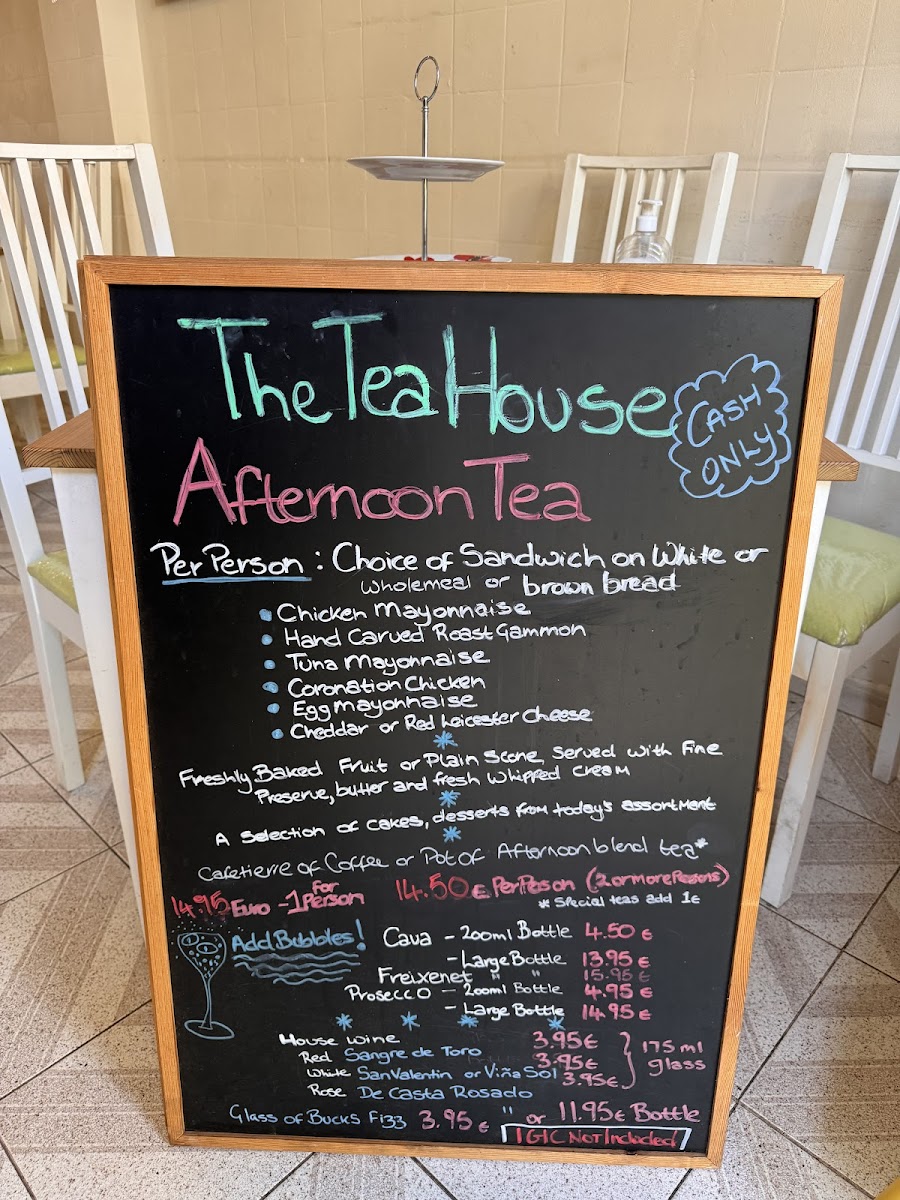 The Tea House
CASH ONLY
Afternoon Tea
Per Person : Choice of Sandwich on White or
wholemeal or brown bread
Chicken Mayonnaise
Hand Carved Roast Gammon
Tuna Mayonnaise
Coronation Chicken
Egg Mayonnaise
Cheddar or Red Leicester Cheese
Freshly Baked Fruit or Plain Scone, Served with Fine
Preserve, butter and fresh whipped cream
A Selection of cakes, desserts from today's assortment
Cafetierre of Coffee or Pot of Afternoon blend tea*
14.95 Euro - 1 for Person 14.50 € Per Person (2 or more Persons)
* Special teas add 1€
Add Bubbles! Cava - 200ml Bottle 4.50 €
- Large Bottle 13.95 €
Freixenet " " 15.95 €
Prosecco - 200ml Bottle 4.95 €
- Large Bottle 14.95 €
House wine 3.95€
Red Sangre de Toro 3.95€
White San Valentin or Viña Sol 3.95€
175 ml glass
Rose De Casta Rosado
Glass of Bucks Fizz 3.95 € " or 11.95€ Bottle
IGIC Not Included